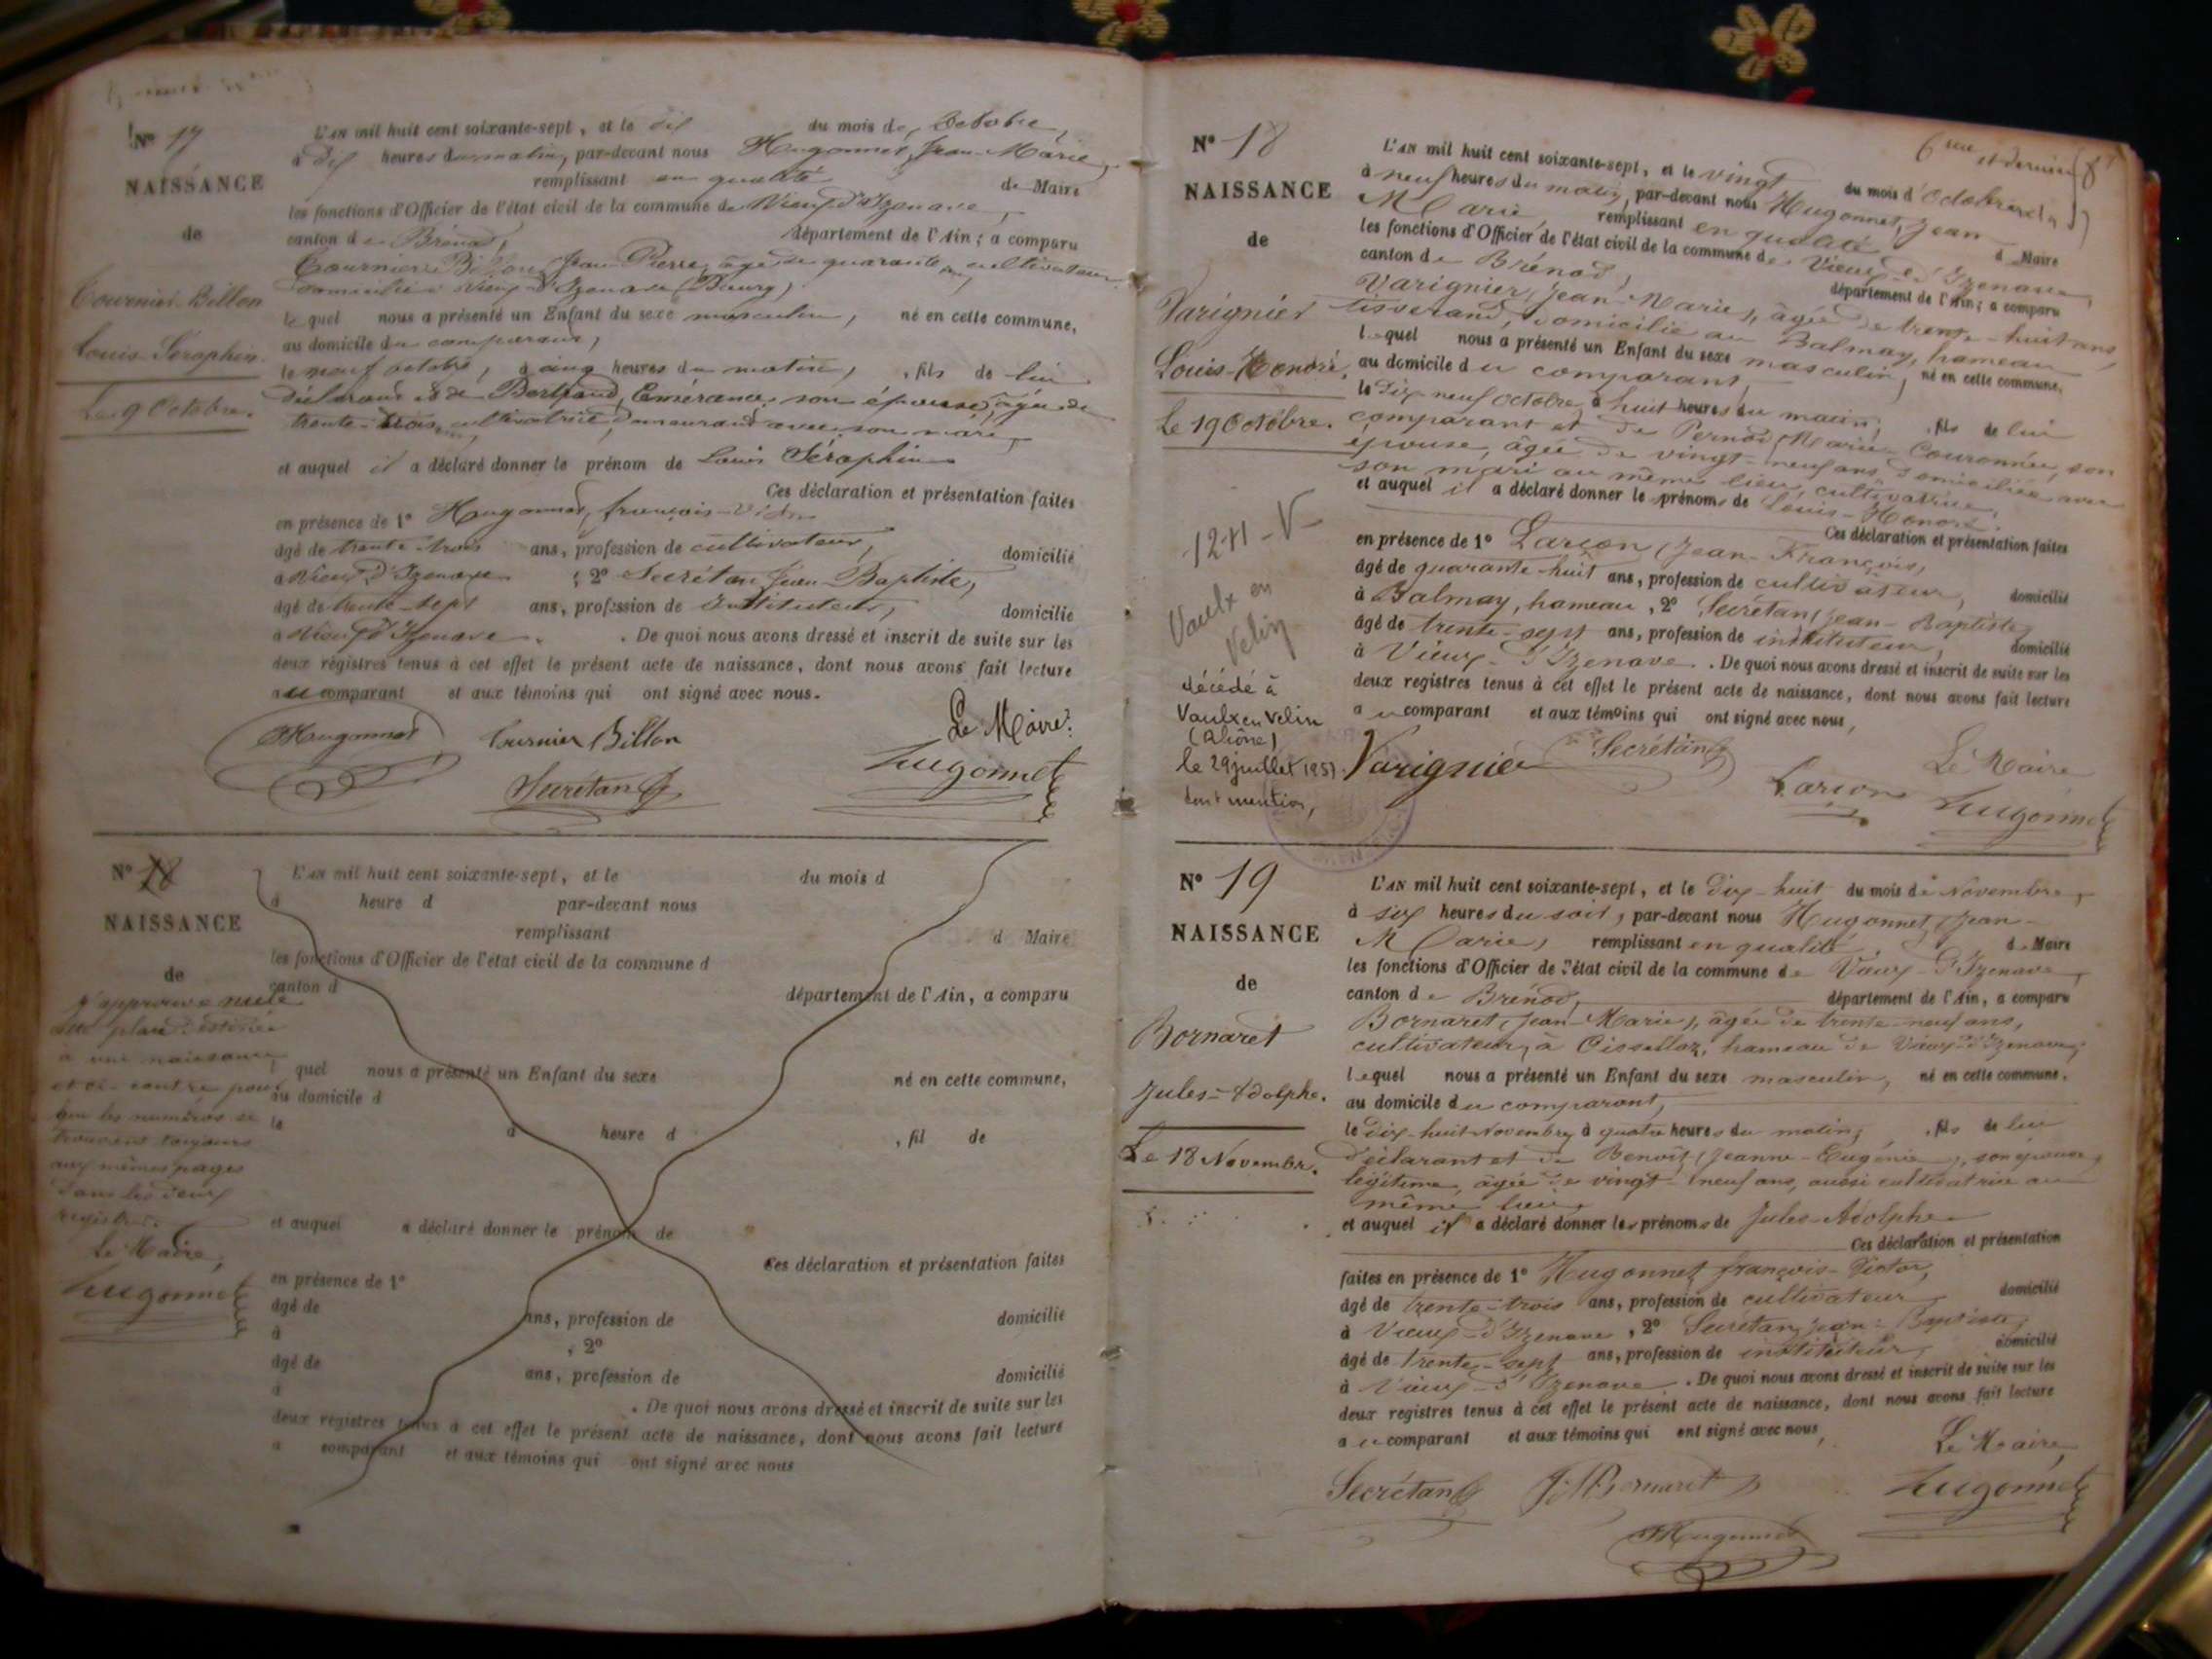 N° 17
NAISSANCE
de
Tournier-Billon
Louis-Séraphin.
Le 9 Octobre.
L'AN mil huit cent soixante-sept, et le dix du mois de Octobre,
à dix heures du matin, par-devant nous Hugonnet, Jean-Marie,
remplissant en qualité de Maire
les fonctions d'Officier de l'état civil de la commune de Vieux-d'Izenave,
canton de Brénod, département de l'Ain; a comparu
Tournier-Billon, Jean-Pierre, âgé de quarante ans, cultivateur
domicilié à Vieux-d'Izenave (Bourg),
lequel nous a présenté un Enfant du sexe masculin, né en cette commune,
au domicile du comparant,
le neuf octobre, à cinq heures du matin, fils de lui
déclarant et de Bertrand, Emérance, son épouse, âgée de
trente-trois, cultivatrice, demeurant avec son mari,
et auquel il a déclaré donner le prénom de Louis Séraphin
Ces déclaration et présentation faites
en présence de 1° Hugonnet, françois-Victor
âgé de trente-trois ans, profession de cultivateur, domicilié
à Vieux-d'Izenave ; 2° Secrétan, Jean-Baptiste,
âgé de trente-sept ans, profession de Instituteur, domicilié
à Vieux-d'Izenave. De quoi nous avons dressé et inscrit de suite sur les
deux régistres tenus à cet effet le présent acte de naissance, dont nous avons fait lecture
au comparant et aux témoins qui ont signé avec nous.
Le Maire:
Hugonnet Tournier Billon Hugonnet
Secrétan
N° 18
NAISSANCE
de
j'approuve nulle
cette place destinée
à une naissance
et ce contre pour
que les numéros se
trouvent toujours
aux mêmes pages
dans les deux
registres.
Le Maire,
Hugonnet
L'AN mil huit cent soixante-sept, et le du mois d
à heure d par-devant nous
remplissant d Maire
les fonctions d'Officier de l'état civil de la commune d
canton d département de l'Ain, a comparu
quel nous a présenté un Enfant du sexe né en cette commune,
au domicile d
le à heure d , fil de
et auquel a déclaré donner le prénom de
Ces déclaration et présentation faites
en présence de 1°
âgé de ans, profession de domicilié
à , 2°
âgé de ans, profession de domicilié
à . De quoi nous avons dressé et inscrit de suite sur les
deux régistres tenus à cet effet le présent acte de naissance, dont nous avons fait lecture
a comparant et aux témoins qui ont signé avec nous
6me et dernier
N° 18
NAISSANCE
de
Varignier
Louis-Honoré.
Le 19 Octobre.
12-11-V
Vaulx en
Velin
décédé à
Vaulx en Velin
(Rhône)
le 29 juillet 1951.
dont mention,
L'AN mil huit cent soixante-sept, et le vingt du mois d'Octobre
à neuf heures du matin, par-devant nous Hugonnet, Jean
Marie, remplissant en qualité d Maire
les fonctions d'Officier de l'état civil de la commune de Vieux-d'Izenave,
canton de Brénod, département de l'Ain; a comparu
Varignier, Jean-Marie, âgé de trente-huit ans,
tisserand, domicilié au Balmay, hameau
lequel nous a présenté un Enfant du sexe masculin, né en cette commune,
au domicile du comparant,
le Dix-neuf octobre, à huit heures du matin, fils de lui
comparant et de Pernod, Marie-Couronnée, son
épouse, âgée de vingt-neuf ans, domiciliée avec
son mari au même lieu, cultivatrice,
et auquel il a déclaré donner le prénoms de Louis-Honoré.
Ces déclaration et présentation faites
en présence de 1° Larçon (Jean-François,
âgé de quarante-huit ans, profession de cultivateur, domicilié
à Balmay, hameau, 2° Secrétan, Jean-Baptiste,
âgé de trente-sept ans, profession de instituteur, domicilié
à Vieux-d'Izenave. De quoi nous avons dressé et inscrit de suite sur les
deux registres tenus à cet effet le présent acte de naissance, dont nous avons fait lecture
au comparant et aux témoins qui ont signé avec nous,
Varignier Secrétan Le Maire
Larçon Hugonnet
N° 19
NAISSANCE
de
Bornaret
Jules-Adolphe.
Le 18 Novembr.
L'AN mil huit cent soixante-sept, et le Dix-huit du mois de Novembre,
à six heures du soir, par-devant nous Hugonnet (Jean-
Marie, remplissant en qualité de Maire
les fonctions d'Officier de l'état civil de la commune de Vieux-d'Izenave,
canton de Brénod, département de l'Ain, a comparu
Bornaret (Jean-Marie), âgé de trente-neuf ans,
cultivateur, à Oisselaz, hameau de Vieux-d'Izenave,
lequel nous a présenté un Enfant du sexe masculin, né en cette commune,
au domicile du comparant,
le Dix-huit Novembre, à quatre heures du matin, fils de lui
déclarant et de Benoit (Jeanne-Eugénie), son épouse
légitime, âgée de vingt-neuf ans, aussi cultivatrice au
même lieu,
et auquel il a déclaré donner les prénoms de Jules-Adolphe
Ces déclaration et présentation
faites en présence de 1° Hugonnet, françois-Victor,
âgé de trente-trois ans, profession de cultivateur, domicilié
à Vieux-d'Izenave, 2° Secrétan, Jean-Baptiste,
âgé de trente-sept ans, profession de instituteur, domicilié
à Vieux-d'Izenave. De quoi nous avons dressé et inscrit de suite sur les
deux registres tenus à cet effet le présent acte de naissance, dont nous avons fait lecture
au comparant et aux témoins qui ont signé avec nous,
Le Maire,
Secrétan J. M. Bornaret Hugonnet
Hugonnet